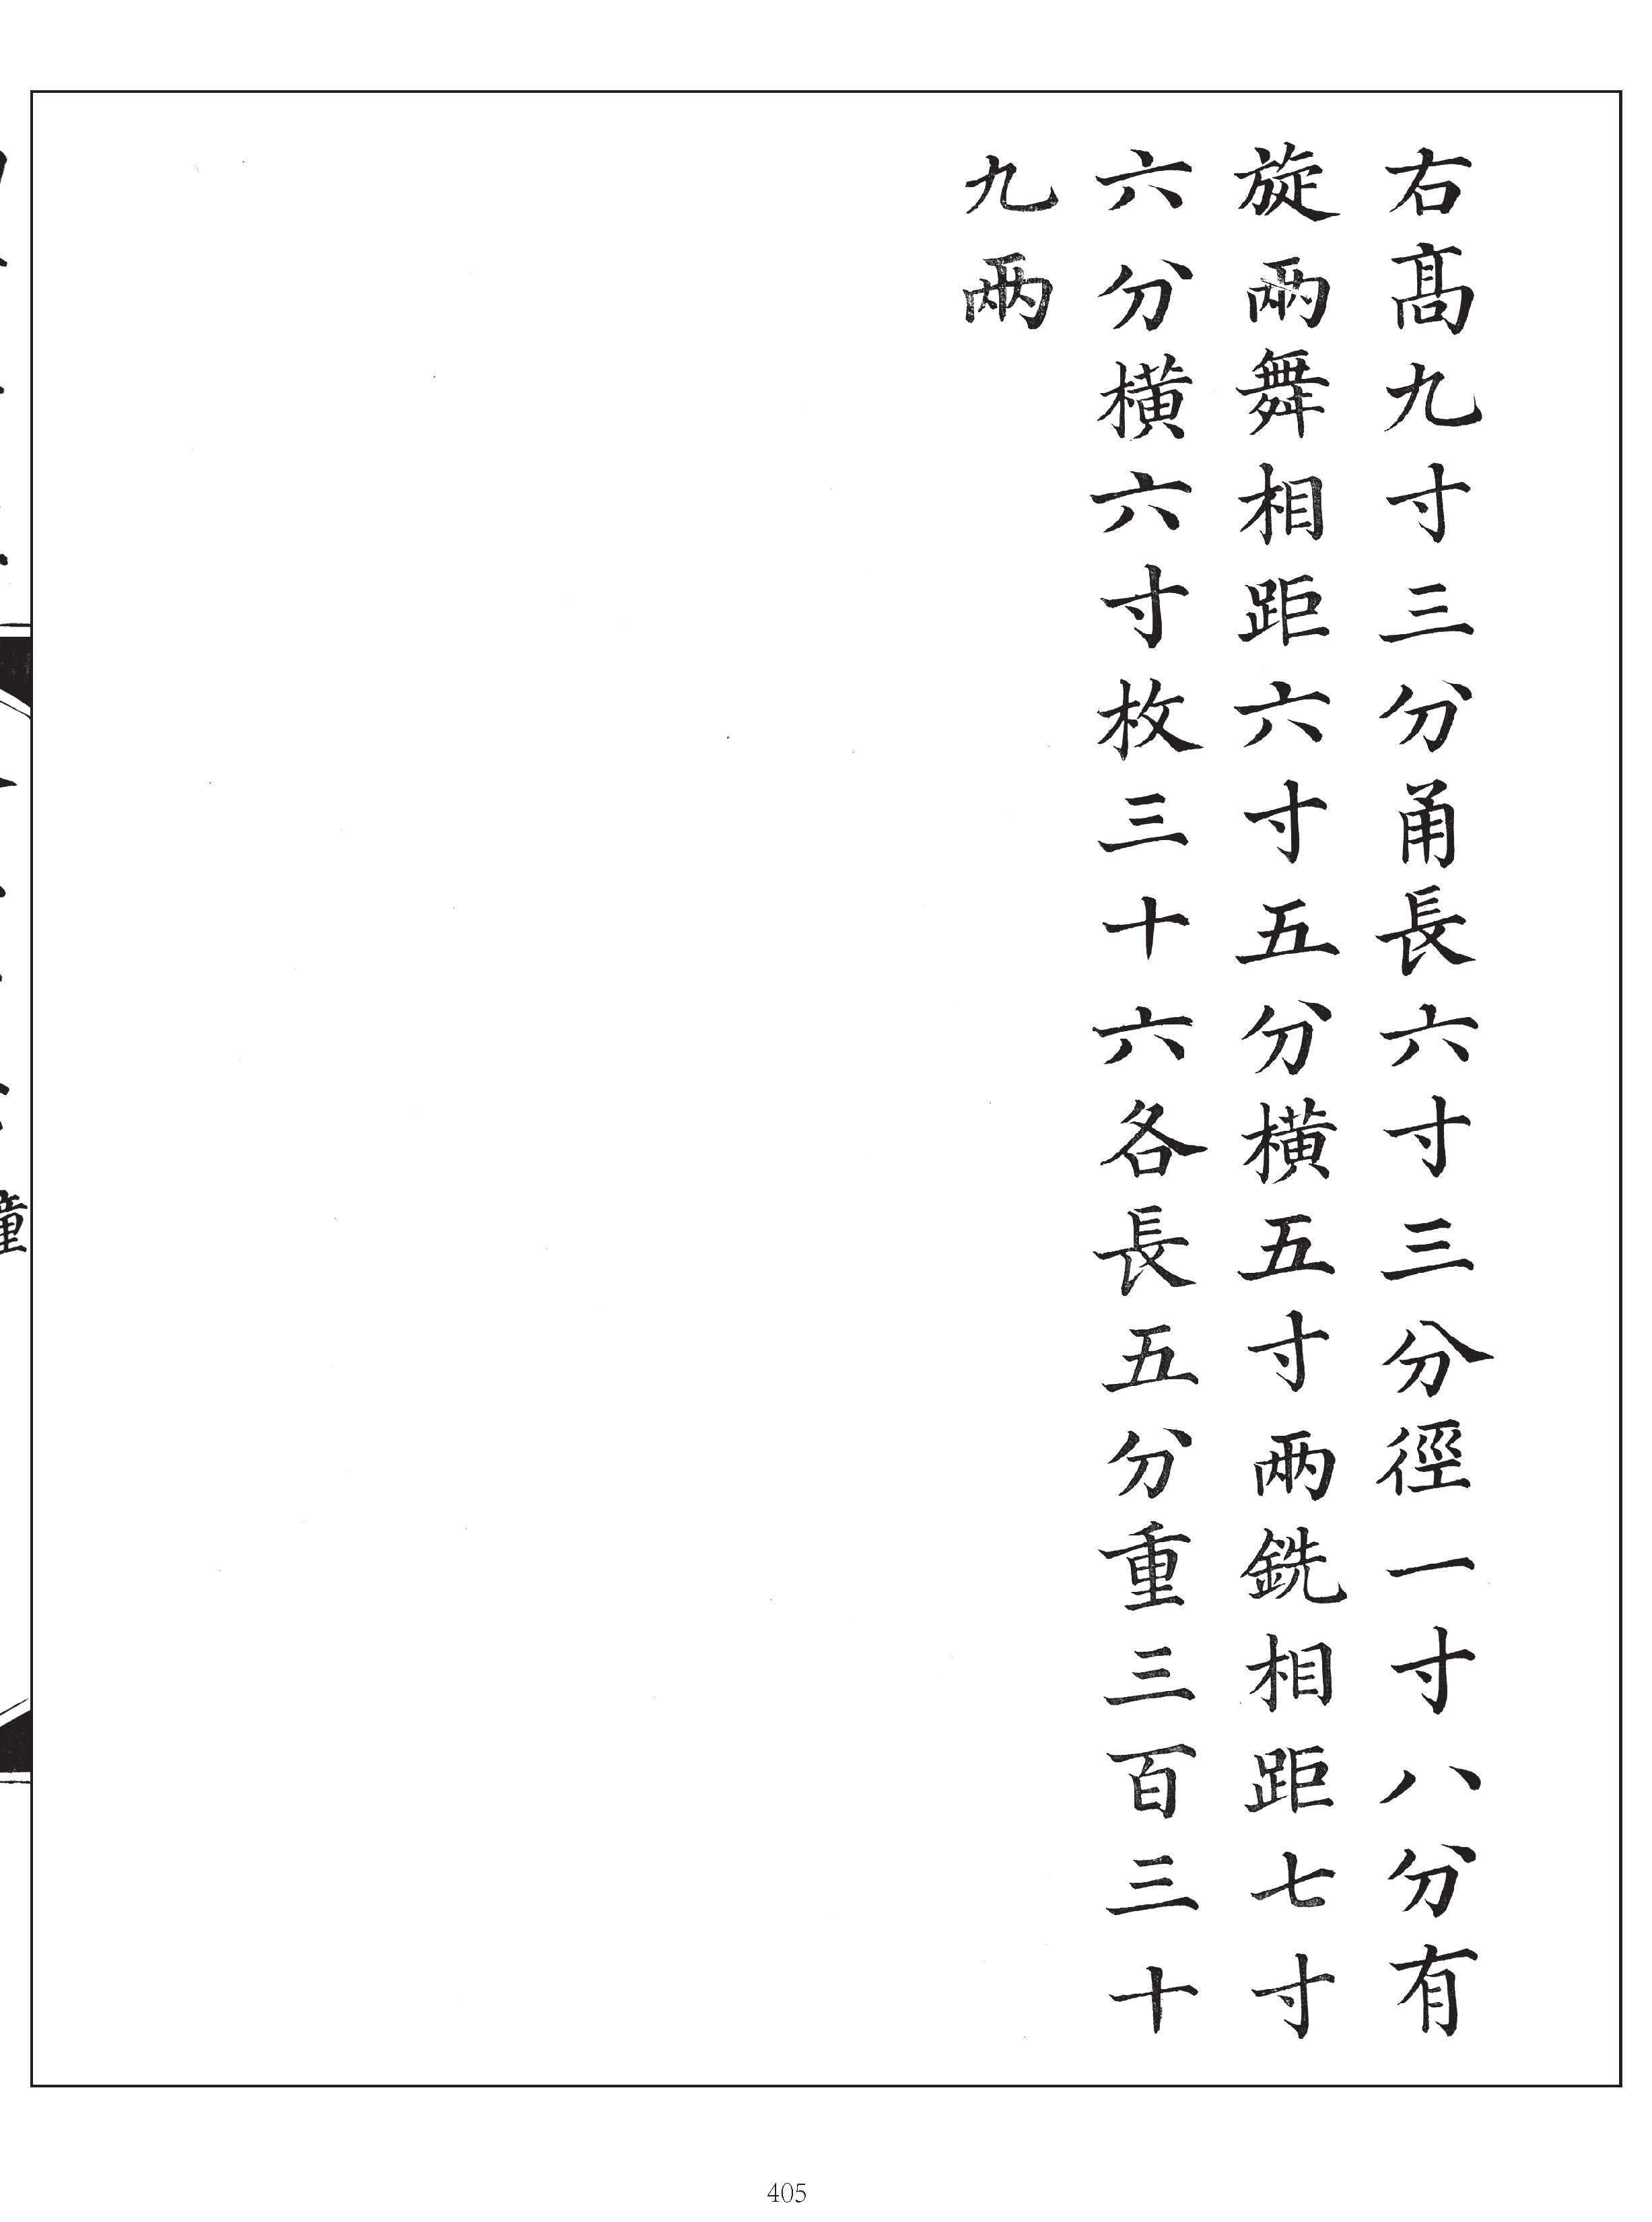 右高九寸三分甬長六寸三分徑一寸八分有
旋兩舞相距六寸五分橫五寸兩銑相距七寸
六分橫六寸枚三十六各長五分重三百三十
九兩
405